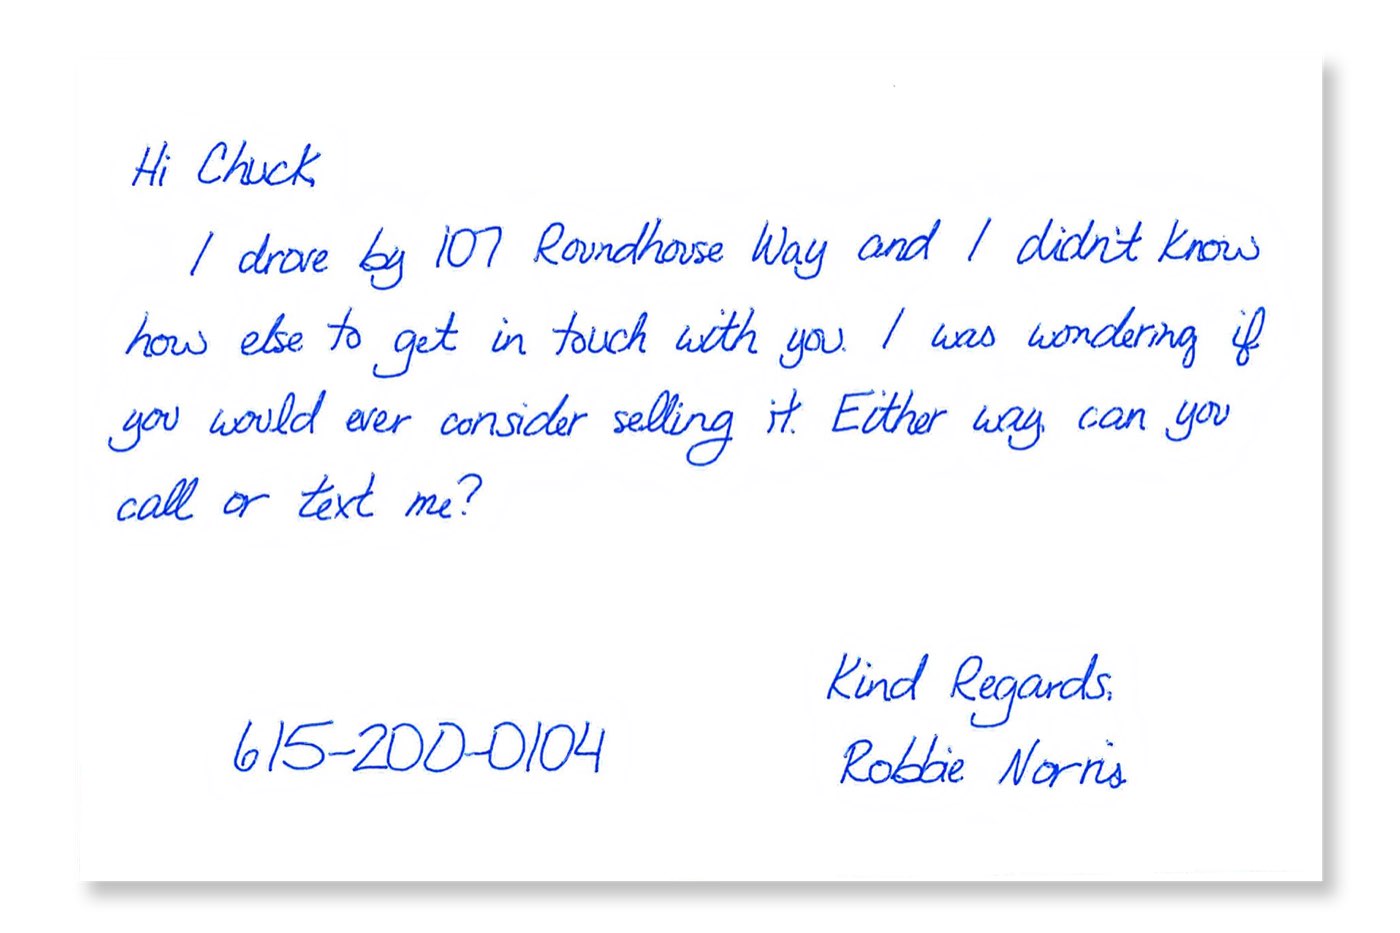 Hi Chuck,
I drove by 107 Roundhouse Way and I didn't know
how else to get in touch with you. I was wondering if
you would ever consider selling it. Either way, can you
call or text me?
Kind Regards,
615-200-0104
Robbie Norris